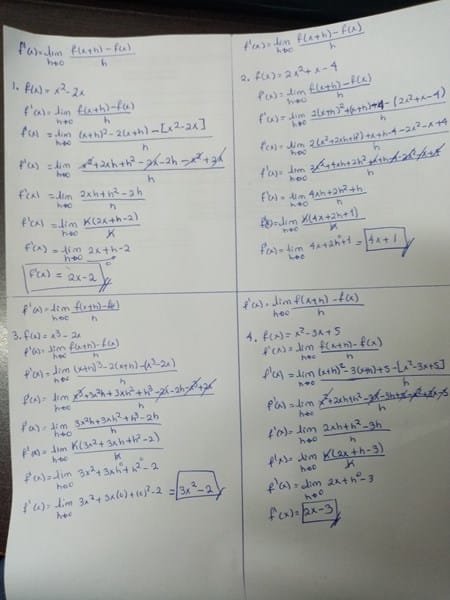 f'(x) = lim h→0 f(x+h) - f(x) / h
1. f(x) = x² - 2x
f'(x) = lim h→0 f(x+h) - f(x) / h
f'(x) = lim h→0 (x+h)² - 2(x+h) - [x² - 2x] / h
f'(x) = lim h→0 x² + 2xh + h² - 2x - 2h - x² + 2x / h
f'(x) = lim h→0 2xh + h² - 2h / h
f'(x) = lim h→0 h(2x + h - 2) / h
f'(x) = lim h→0 2x + h - 2
f'(x) = 2x - 2
f'(x) = lim h→0 f(x+h) - f(x) / h
2. f(x) = 2x² + x - 4
f'(x) = lim h→0 f(x+h) - f(x) / h
f'(x) = lim h→0 2(x+h)² + (x+h) - 4 - (2x² + x - 4) / h
f'(x) = lim h→0 2(x² + 2xh + h²) + x + h - 4 - 2x² - x + 4 / h
f'(x) = lim h→0 2x² + 4xh + 2h² + x + h - 4 - 2x² - x + 4 / h
f'(x) = lim h→0 4xh + 2h² + h / h
f'(x) = lim h→0 h(4x + 2h + 1) / h
f'(x) = lim h→0 4x + 2h⁰ + 1 = 4x + 1
f'(x) = lim h→0 f(x+h) - f(x) / h
3. f(x) = x³ - 2x
f'(x) = lim h→0 f(x+h) - f(x) / h
f'(x) = lim h→0 (x+h)³ - 2(x+h) - (x³ - 2x) / h
f'(x) = lim h→0 x³ + 3x²h + 3xh² + h³ - 2x - 2h - x³ + 2x / h
f'(x) = lim h→0 3x²h + 3xh² + h³ - 2h / h
f'(x) = lim h→0 h(3x² + 3xh + h² - 2) / h
f'(x) = lim h→0 3x² + 3xh⁰ + h⁰ - 2
f'(x) = lim h→0 3x² + 3x(0) + (0)² - 2 = 3x² - 2
f'(x) = lim h→0 f(x+h) - f(x) / h
4. f(x) = x² - 3x + 5
f'(x) = lim h→0 f(x+h) - f(x) / h
f'(x) = lim h→0 (x+h)² - 3(x+h) + 5 - [x² - 3x + 5] / h
f'(x) = lim h→0 x² + 2xh + h² - 3x - 3h + 5 - x² + 3x - 5 / h
f'(x) = lim h→0 2xh + h² - 3h / h
f'(x) = lim h→0 h(2x + h - 3) / h
f'(x) = lim h→0 2x + h⁰ - 3
f'(x) = 2x - 3